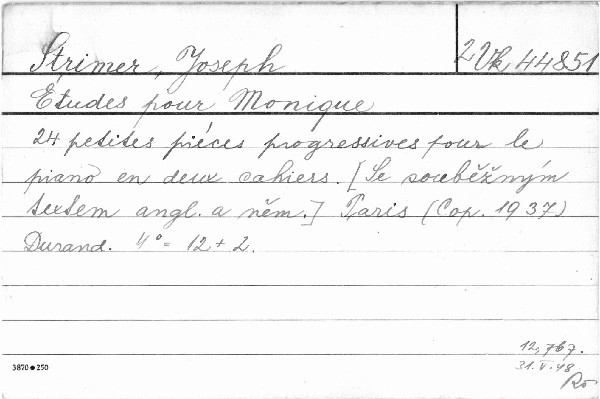 Strimer, Joseph
2 Vk 44851
Etudes pour Monique
24 petites piéces progressives pour le
piano en deux cahiers. [Se souběžným
textem angl. a něm.] Paris (Cop. 1937)
Durand. 4° = 12 + 2.
12,767.
31.V.48
Ro
3870 ● 250